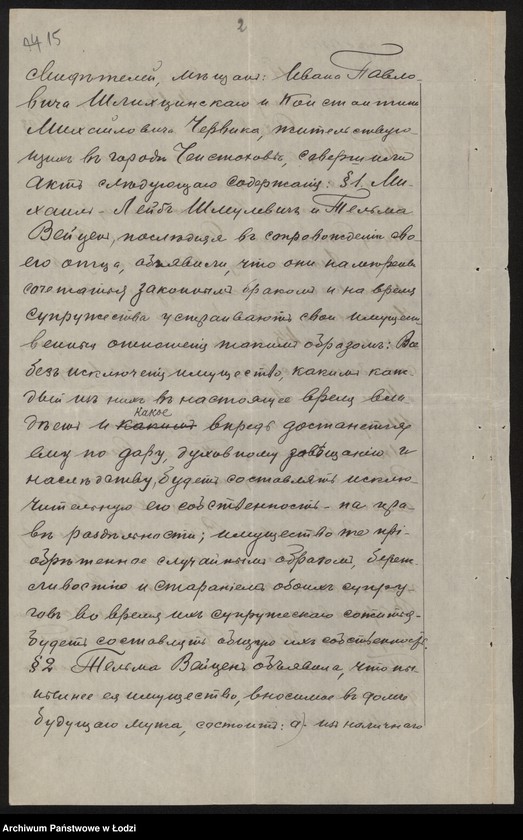 2
15
свидѣтелей, мѣщанъ: Ивана Павло-
вича и Константина
Михайловича Червика, жительствую-
щихъ въ городѣ Ченстоховѣ, совершили
актъ слѣдующаго содержанія: §1. Ми-
хаилъ-Лейбъ Шмулевичъ и Тельма
Вейценъ, послѣдняя въ сопровожденіи сво-
его отца, объявили, что они намѣрены
сочетаться законнымъ бракомъ и на время
супружества устраиваютъ свои имущест-
венныя отношенія такимъ образомъ: Все
безъ исключенія имущество, какимъ каж-
дый изъ нихъ въ настоящее время вла-
дѣетъ и какое впредь достанется
ему по дару, духовному завѣщанію и
наслѣдству, будетъ составлять исклю-
чительную его собственность на пра-
вѣ раздѣльности; имущество же прі-
обрѣтенное случайнымъ образомъ, береж-
ливостію и стараніемъ обоихъ супру-
говъ во время ихъ супружескаго сожитья
будетъ составлять общую ихъ собственность.
§2 Тельма Вайценъ объявила, что ны-
нѣшнее ея имущество, вносимое въ домъ
будущаго мужа, состоитъ: а) изъ наличнаго
Archiwum Państwowe w Łodzi